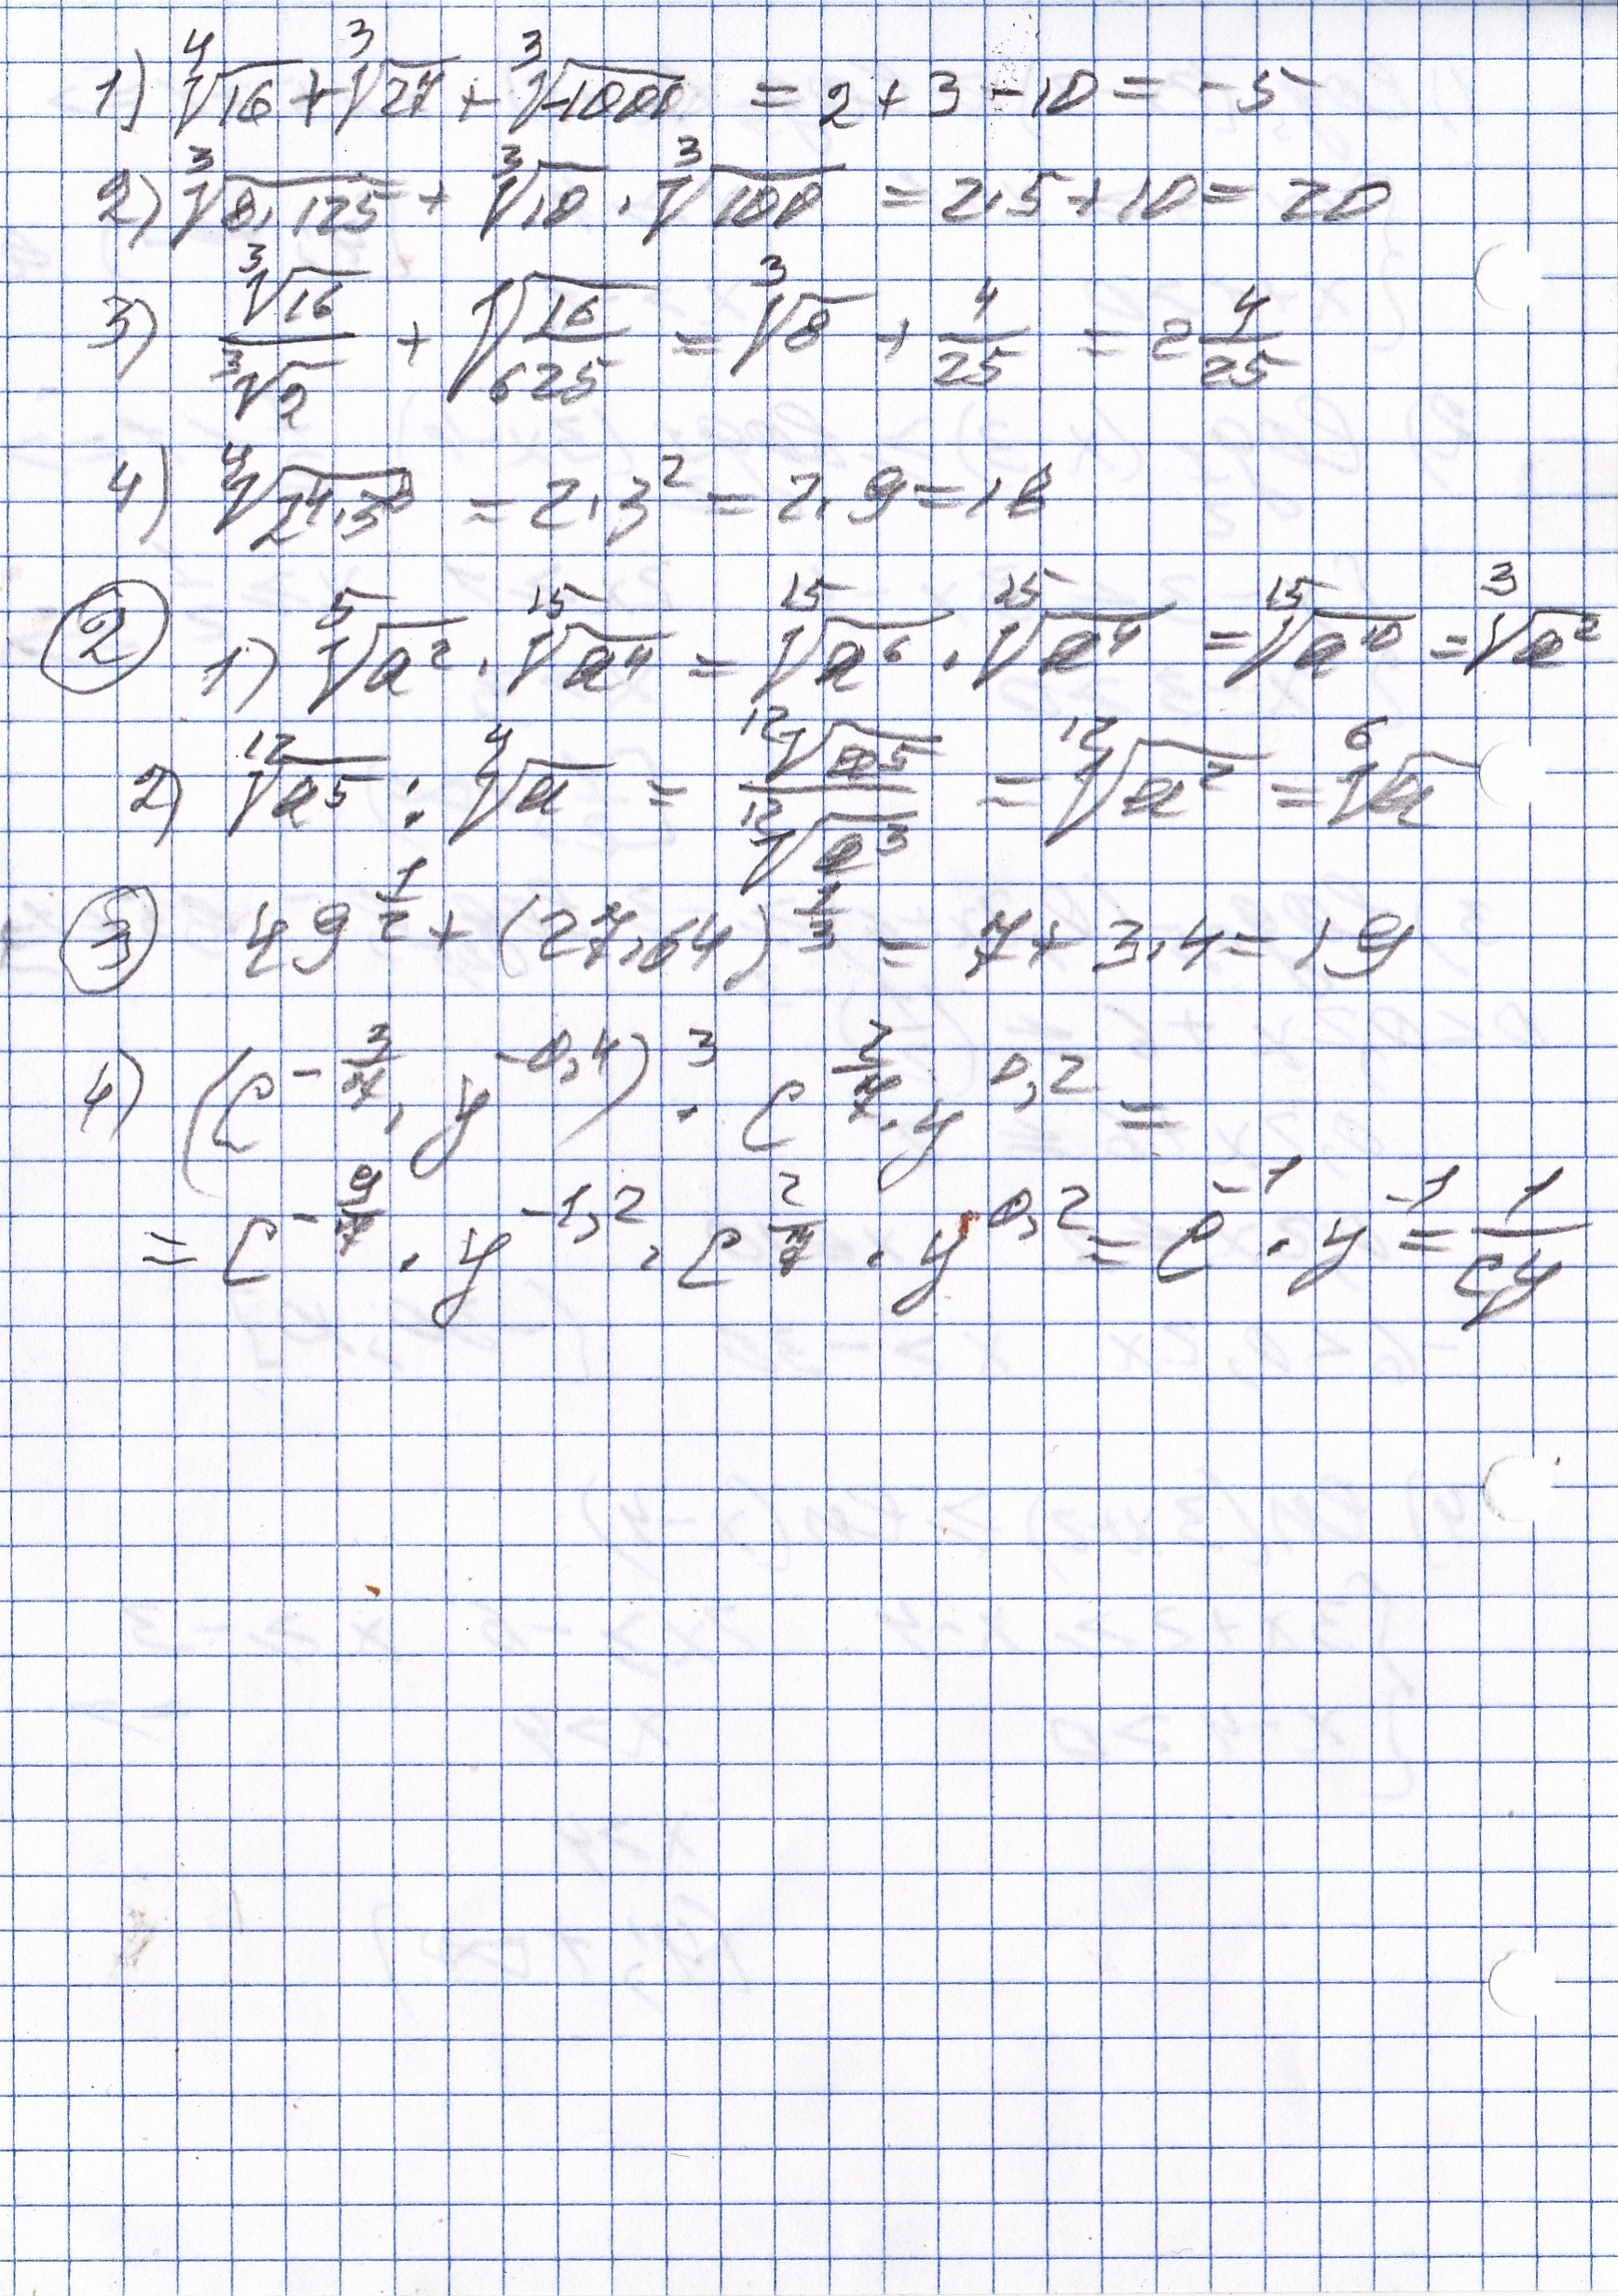 1) ⁴√16 + ³√27 + ³√-1000 = 2 + 3 - 10 = -5
2) ³√(8·125) + ³√10 · ³√100 = 2·5 + 10 = 20
3) ³√16 / ³√2 + √(16/625) = ³√8 + 4/25 = 2 4/25
4) ⁴√(2⁴·3⁸) = 2·3² = 2·9 = 18
② 1) ⁵√a² · ¹⁵√a⁴ = ¹⁵√a⁶ · ¹⁵√a⁴ = ¹⁵√a¹⁰ = ³√a²
2) ¹²√a⁵ : ⁴√a = ¹²√a⁵ / ¹²√a³ = ¹²√a² = ⁶√a
③ 49^(1/2) + (27·64)^(1/3) = 7 + 3·4 = 19
4) (c^(-3/7) · y^(-0,4))³ · c^(2/7) · y^(0,2) =
= c^(-9/7) · y^(-1,2) · c^(2/7) · y^(0,2) = c^(-1) · y^(-1) = 1/(cy)